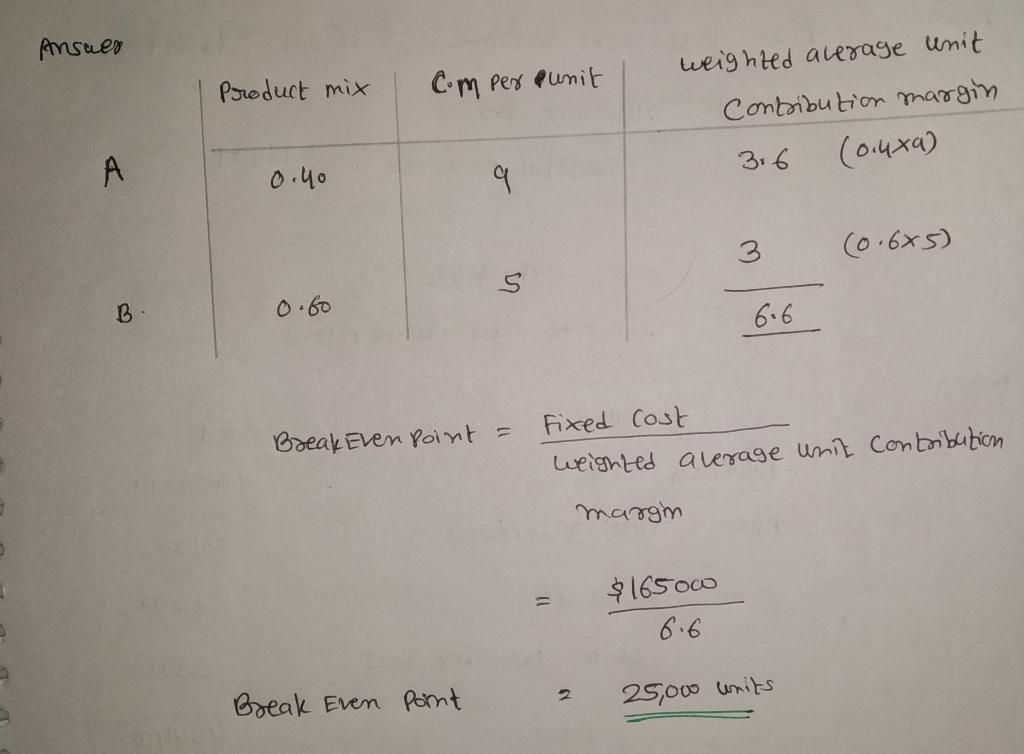 Answer
Product mix C.m per unit weighted average unit
Contribution margin
A 0.40 9 3.6 (0.4x9)
B. 0.60 5 3 (0.6x5)
6.6
Break Even Point = Fixed Cost
weighted average unit Contribution
margin
= $165000
6.6
Break Even Point = 25,000 units